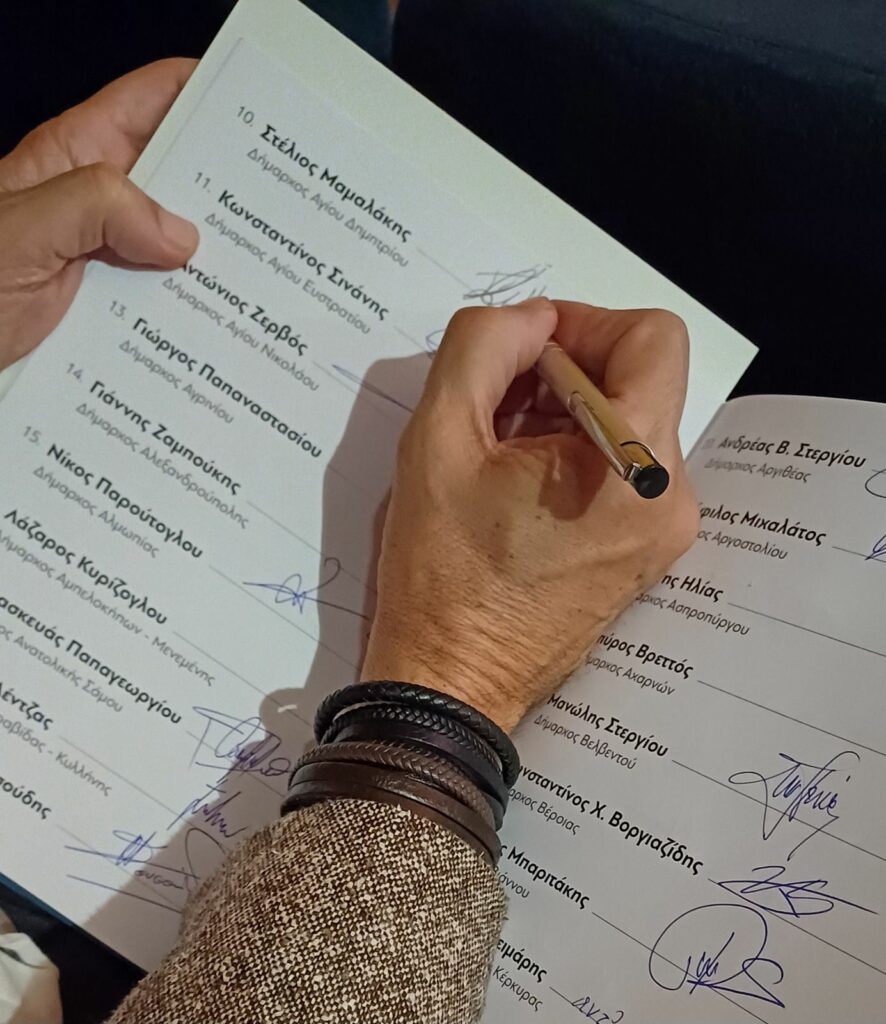 10. Στέλιος Μαμαλάκης
Δήμαρχος Αγίου Δημητρίου
11. Κωνσταντίνος Σινάνης
Δήμαρχος Αγίου Ευστρατίου
ντώνιος Ζερβός
Δήμαρχος Αγίου Νικολάου
13. Γιώργος Παπαναστασίου
Δήμαρχος Αγρινίου
14. Γιάννης Ζαμπούκης
Δήμαρχος Αλεξανδρούπολης
15. Νίκος Παρούτογλου
Δήμαρχος Αλμωπίας
Λάζαρος Κυρίζογλου
Δήμαρχος Αμπελοκήπων - Μενεμένης
ασκευάς Παπαγεωργίου
ος Ανατολικής Σάμου
Λέντζας
ραβίδας - Κυλλήνης
ούδης
Ανδρέας Β. Στεργίου
Δήμαρχος Αργιθέας
φιλος Μιχαλάτος
ος Αργοστολίου
ης Ηλίας
μαρχος Ασπροπύργου
πύρος Βρεττός
ήμαρχος Αχαρνών
Μανώλης Στεργίου
Δήμαρχος Βελβεντού
νσταντίνος Χ. Βοργιαζίδης
αρχος Βέροιας
ς Μπαριτάκης
άννου
ειμάρης
Κέρκυρας